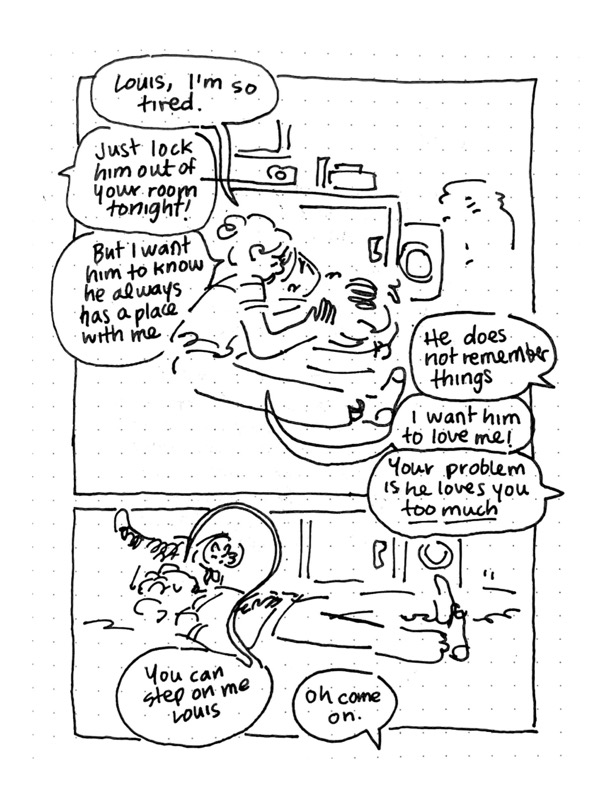 Louis, I'm so
tired.
Just lock
him out of
your room
tonight!
But I want
him to know
he always
has a place
with me
He does
not remember
things
I want him
to love me!
Your problem
is he loves you
too much
You can
step on me
Louis
Oh come
on.